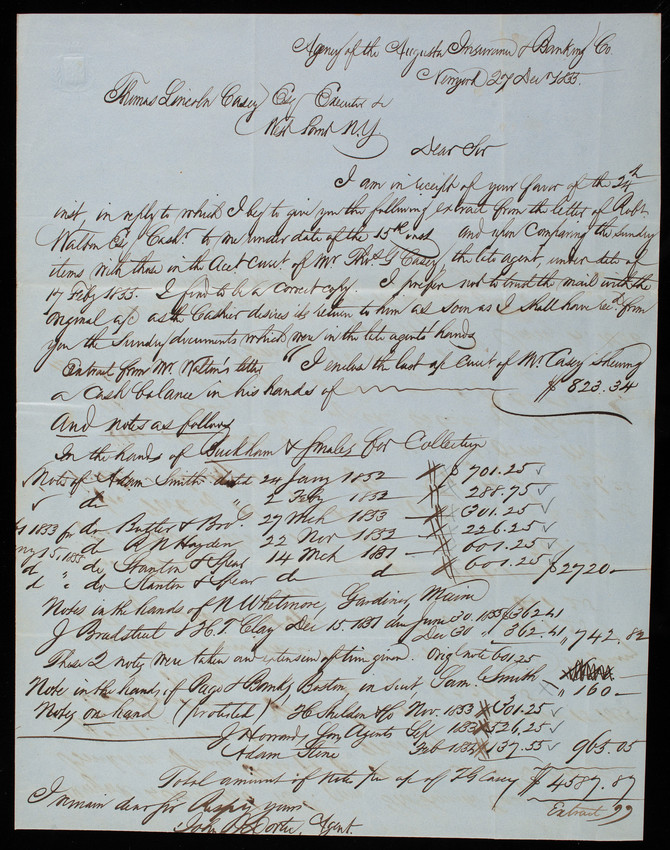 Agency of the Augusta Insurance & Banking Co.
Newyork 27 Decr 1855.
Thomas Lincoln Casey Esq Executor &c
West Point N.Y
Dear Sir
I am in receipt of your favor of the 24th
inst, in reply to which I beg to give you the following extract from the letter of Robt
Walton Esq Cashr to me under date of the 15th inst and upon comparing the sundry
items with those in the Acct Curct of Mr Thos G Casey, the late agent, under date of
17 Feby 1855. I find to be a correct copy. I prefer not to trust the mail with the
original a/c as the Cashier desires its return to him as soon as I shall have recd from
you the sundry documents which were in the late agents hands
Extract from Mr. Walton's letter "I enclose the last a/c Curct of Mr. Casey shewing
a Cash balance in his hands of $ 823.34
And notes as follows
In the hands of Buckham & Smales for Collection
Notes of Adam Smith dated 24 Jany 1832 $ 701.25
do 2 Feby 1832 288.75
1833 fr do Butler & Bro. 27 Mch 1833 301.25
15, 1835 do A N Hayden 22 Nov 1832 226.25
d " do Stanton & Spear 14 Mch 1831 601.25
d " do Stanton & Spear do d 601.25 $2720
Notes in the hands of N Whitmore, Gardiner, Maine
J Bradstreet & H. T. Clay Dec 15. 1831 due June 30. 1833 $362.41
Dec 30 " 362.41 " 742.82
These 2 notes were taken and extension of time given. Orig note 601.25
Note in the hands of Page & Bond, Boston, in suit Sam. Smith " 160
Notes on hand (protested) H Sheldon & Co Nov. 1833 301.25
J Howard, Jon Agents Sep 183 526.25
Adam Stone Feb 183 137.55 965.05
Total amount of notes pr a/c of T G Casey $ 4587.87
Extract "
I remain dear Sir Respy yours
John Agent.